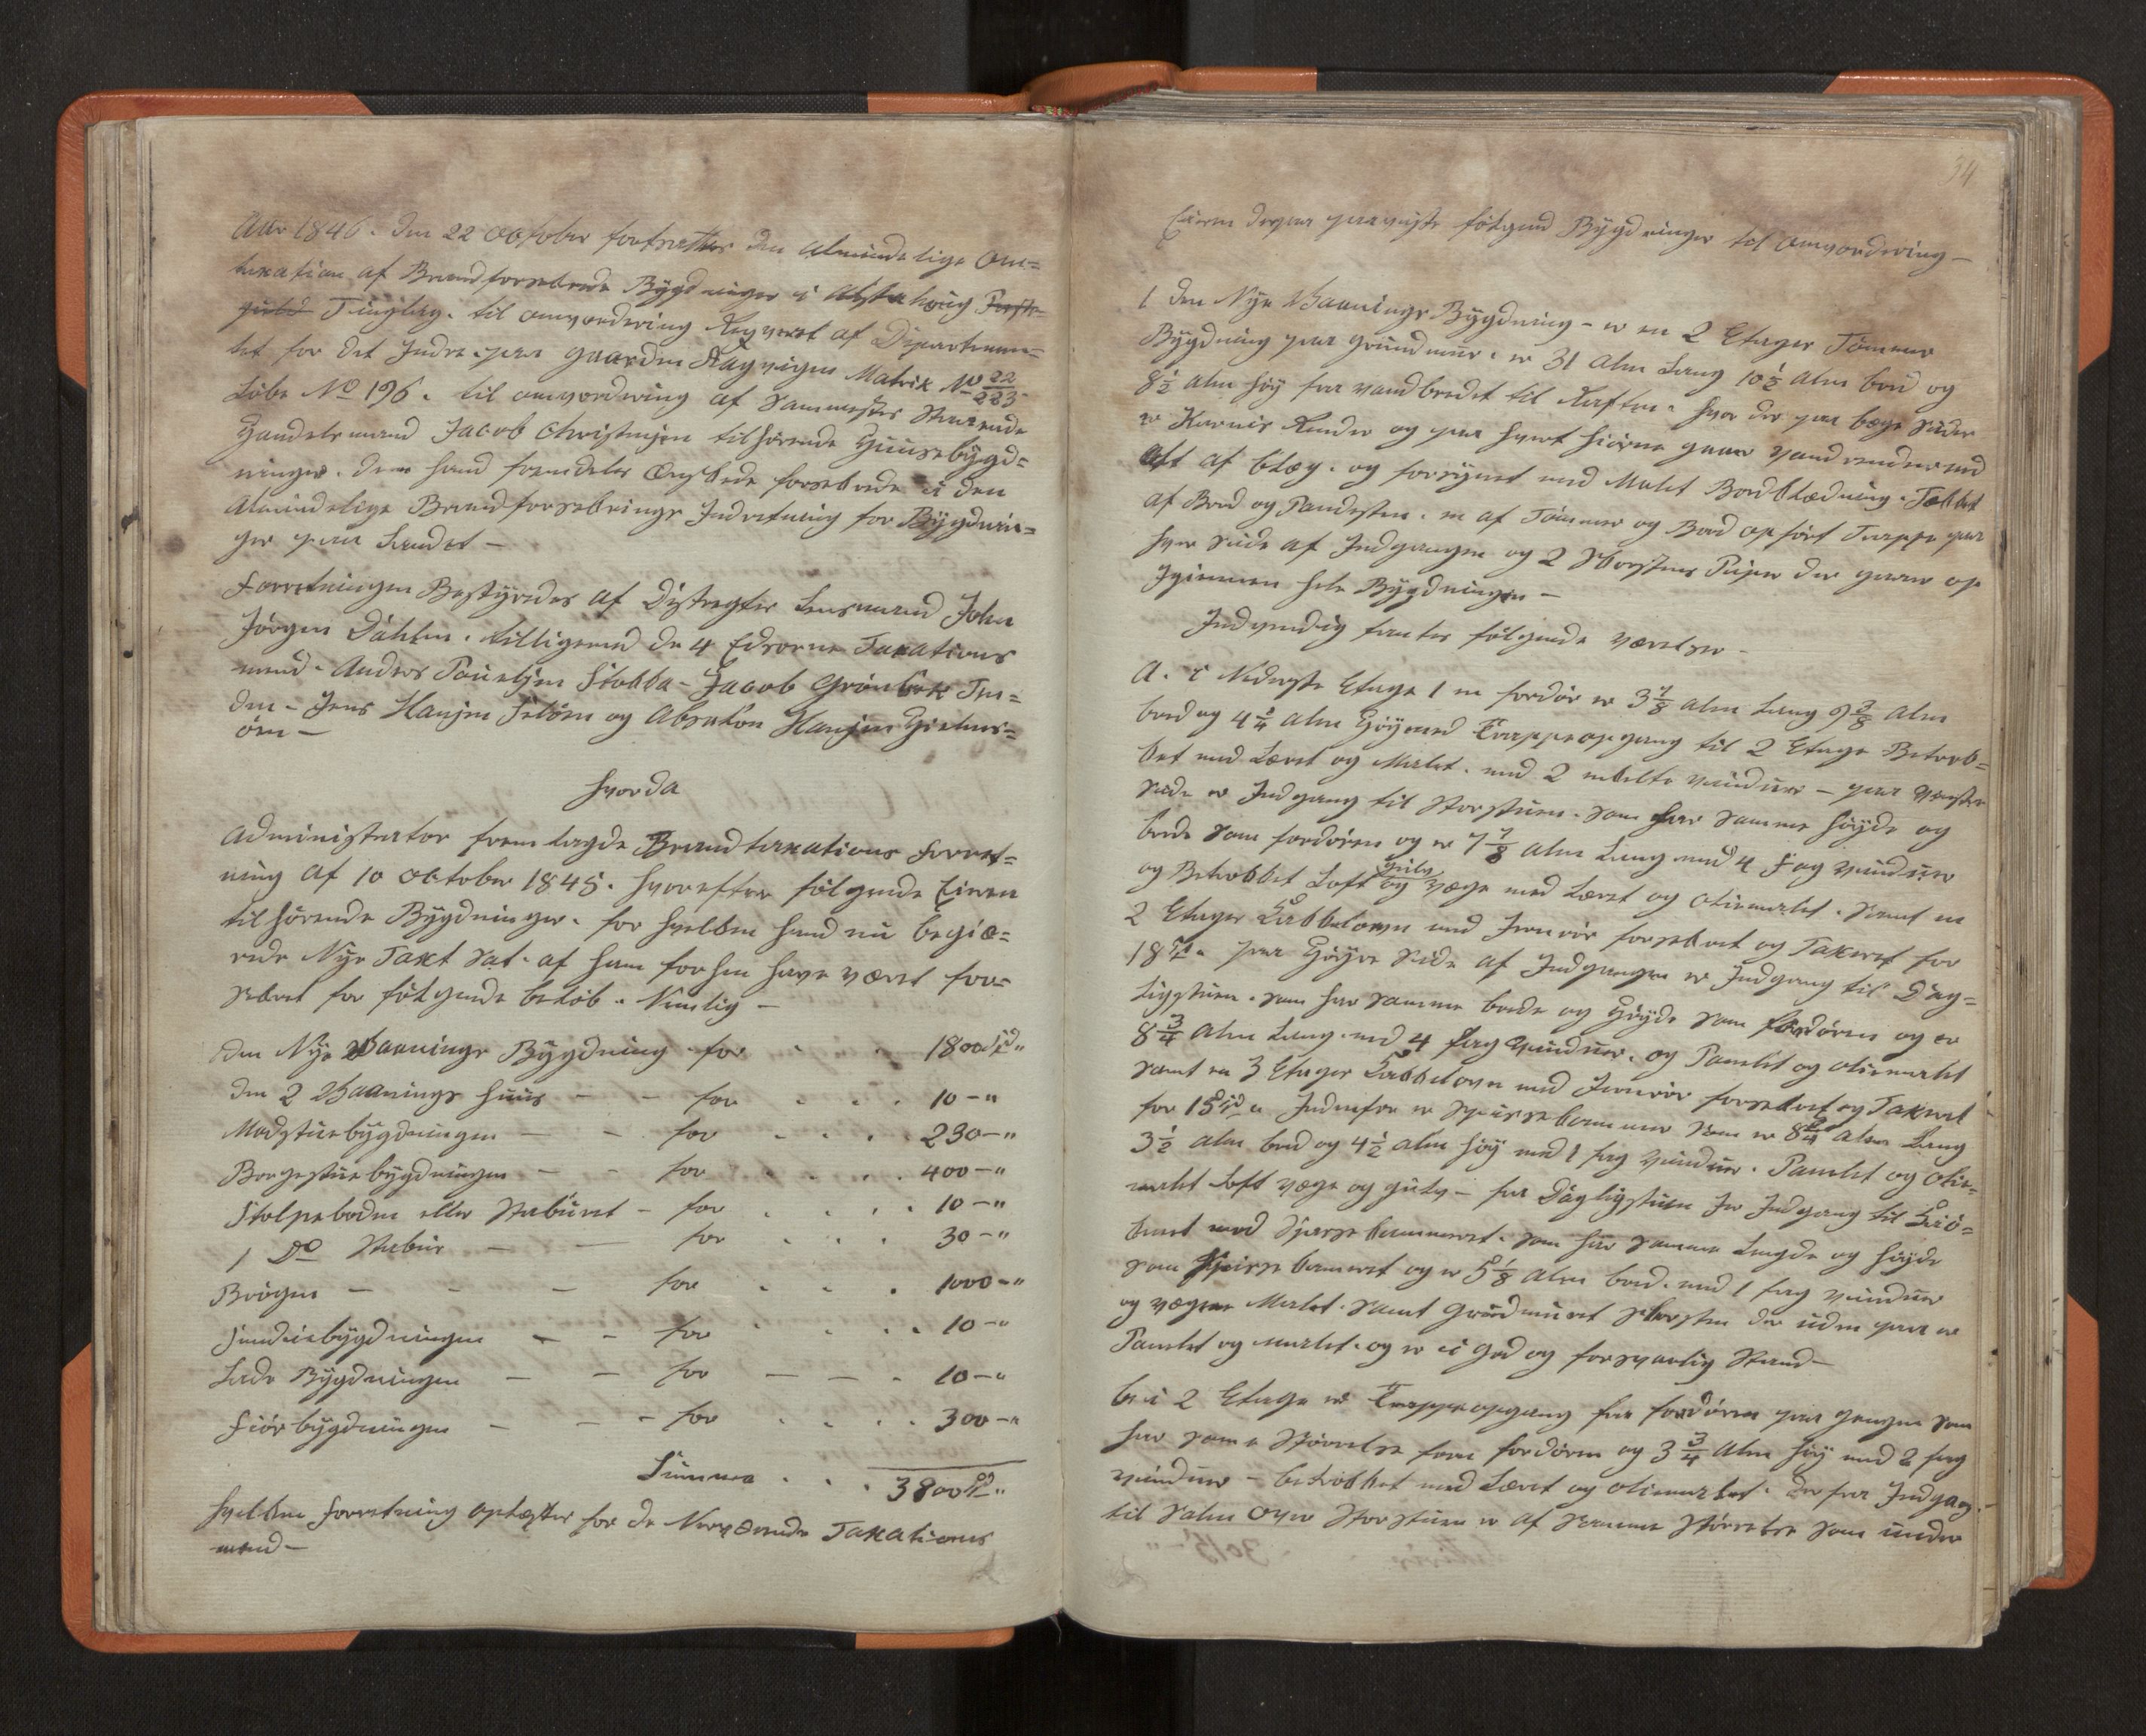 Aar 1846. den 22 October fortsattes den Almindelige Om=
taxation af Brandforsikrede Bygninger i Alstahoug Præste-
gield Tinglag. til omvordering Reqveret af Departemen=
tet for det Indre. paa Gaarden Haugvigen Matrik No 22/223
Løbe No 196. til omvordering af Sammesteds Værende
Handelsmand Jacob Christensen tilhørende Huusebygd=
ninger. dem hand fremdeles Ønskede forsikrede i den
Almindelige Brandforsikrings Indretning for Bygdnin=
ger paa Landet –
Forretningen Bestyredes af Distrigtes Lensmand John
Jørgen Dahlen. tilligemed de 4 Edsorne Taxations
mænd. Anders Poulsen Stokka – Jacob Grønbek Ten=
den – Jens Hansen og Absalon Hansen
øen –
hvorda
Administrator fremlagde Brandtaxations Forret=
ning af 10 October 1845. hvorefter følgende Eieren
tilhørende Bygdninger. for hvilken hand nu begiæ=
rede Nye Taxt Sat. af ham forhen have været for=
sikret for følgende beløb. Nemlig –
den Nye Vaanings Bygdning for . . 1800 Spd "
den 2 Vaanings huus – – for . . . 10 – "
Madstuebygdningen – – for . . . 230 – "
Borgestuebygdningen – – for . . . 400 – "
Stolpeboden eller Stabüret – for . . . 10 – "
1 Do Stabür – – for . . . 30 – "
Brøgen – – – for . . . 1000 – "
Fundiebygdningen – – for . . . 10 – "
Lade Bygdningen – – for – – . 10 – "
Fiørbygdningen – – – for . . . 300 – "
Summa . . . 3800 Spd "
hvilken Forretning oplæstes for de Nerværende Taxations
mænd –
34
Eieren derpaa paaviste følgende Bygdninger til omvordering –
1 den Nye Vaanings Bygdning – er en 2 Etages Tømmer
Bygdning paa Grundmuur. er 31 Alen Lang 10 1/2 Alen bred og
8 1/2 Alen høy fra vandbredet til Raften. hvor der paa begge Sider
er Karnis Render og paa hvert hiørne gaaer Vandrender ned
Alt af blæg. og forsynet med Malet Bordklædning. Tækket
af Bord og Pandesten. en af Tømmer og Bord opført Trappe paa
hver Side af Indgangen og 2 Skorstens Piper der gaaer op
Igiennem hele Bygdningen –
Indvendig fantes følgende Værelser –
A. i Nederste Etage 1 en fordør er 3 7/8 Alen Lang 9 3/8 Alen
bred og 4 3/4 Alen Høy med Trappeopgang til 2 Etage Betræk=
ket med Læret og Malet. med 2 enkelte vinduer – paa Venstre
Side er Indgang til Storstuen. som har samme høyde og
brede som fordøren og er 7 7/8 Alen Lang med 4 Fag vinduer
og Betrækket Loft gulv og Væge med Læret og oliemalet. samt en
2 Etages Kakkelovn med Jernrør forsikret og Taxeret for
18 Spd " paa Høyre Side af Indgangen er Indgang til Dag=
ligstuen. som har samme brede og Høyde som fordøren og er
8 3/4 Alen Lang. med 4 Fag vinduer. og Panelet og oliemalet
samt en 3 Etages Kakkelovn med Jernrør forsikret og Taxeret
for 15 Spd " Indenfor er Spiisekammer som er 8 3/4 Alen Lang
3 1/2 Alen bred og 4 1/2 Alen høy med 1 fag vinduer. Panelet og olie=
malet loft væge og gulv – fra Dagligstuen Er Indgang til Kiø=
kenet med Spisekammeret. som har samme Lengde og høyde
som Spiisekameret og er 5 1/8 Alen bred. med 1 fag vinduer
og væggene Malet. samt Grundmuret Skorsten der uden paa er
Panelet og malet. og er i god og forsvarlig Stand –
b. i 2 Etage er Trappeopgang fra fordøren paa Gangen som
har same Størrelse som fordøren og 3 3/4 Alen høy med 2 fag
vinduer – betrækket med Læret og oliemalet. der fra Indgang
til Salen over Storstuen er af samme Størrelse som under